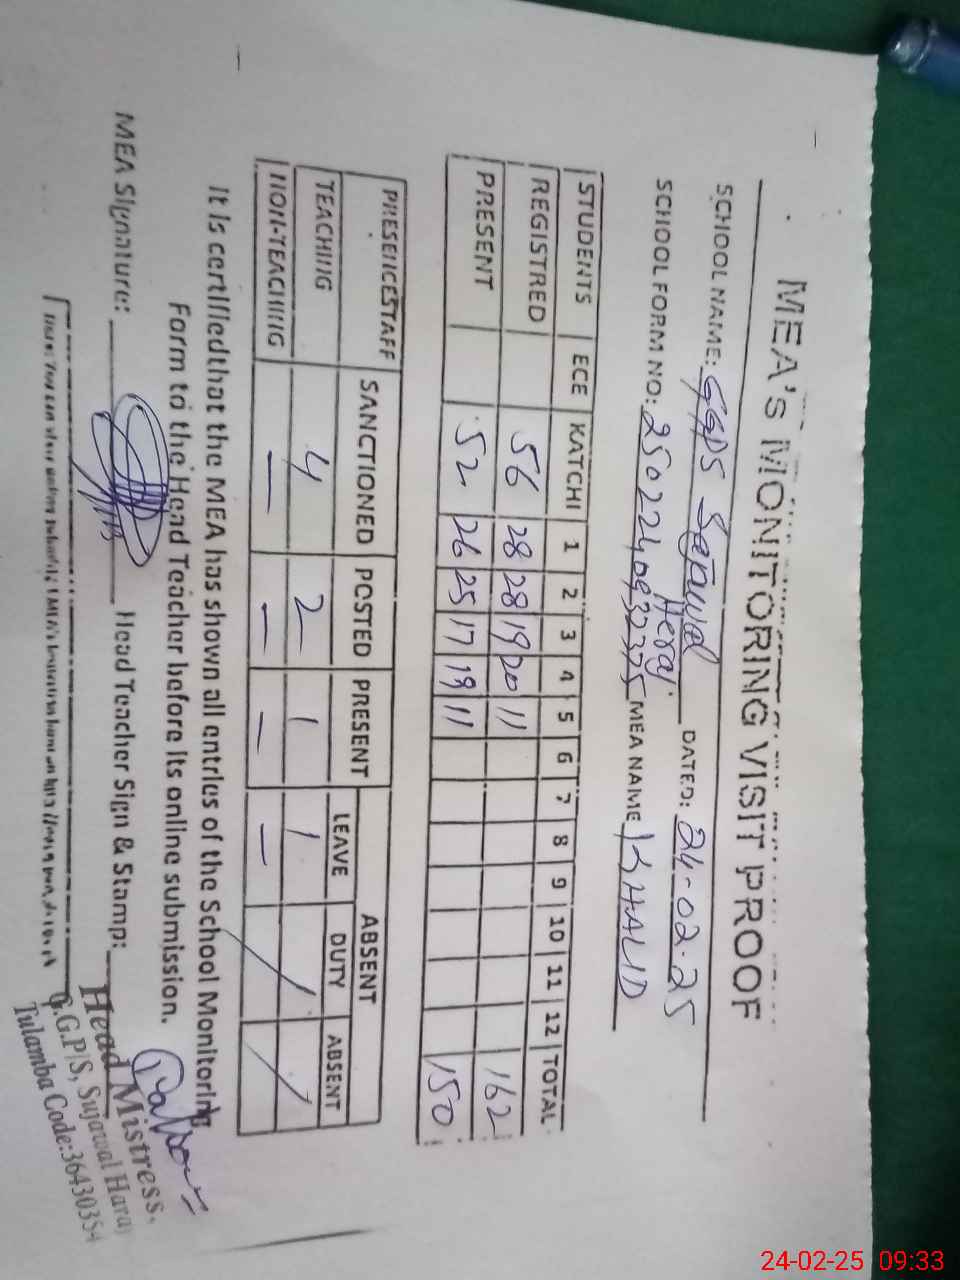 MEA'S MONITORING VISIT PROOF
SCHOOL NAME: GGPS Sajawal Heraj DATED: 24-02-25
SCHOOL FORM NO: MEA NAME KHALID
STUDENTS ECE KATCHI 1 2 3 4 5 6 7 8 9 10 11 12 TOTAL
REGISTRED 56 28 28 19 20 11 162
PRESENT 52 26 25 17 19 11 150
PRESENCESTAFF SANCTIONED POSTED PRESENT ABSENT
LEAVE DUTY ABSENT
TEACHING 4 2 1 1 / /
NON-TEACHING — — — —
It is certifiedthat the MEA has shown all entries of the School Monitoring
Form to the Head Teacher before its online submission.
MEA Signature: Head Teacher Sign & Stamp:
Head Mistress,
G.G.P/S, Sujawal Haraj
Tulamba Code:36430354
24-02-25 09:33